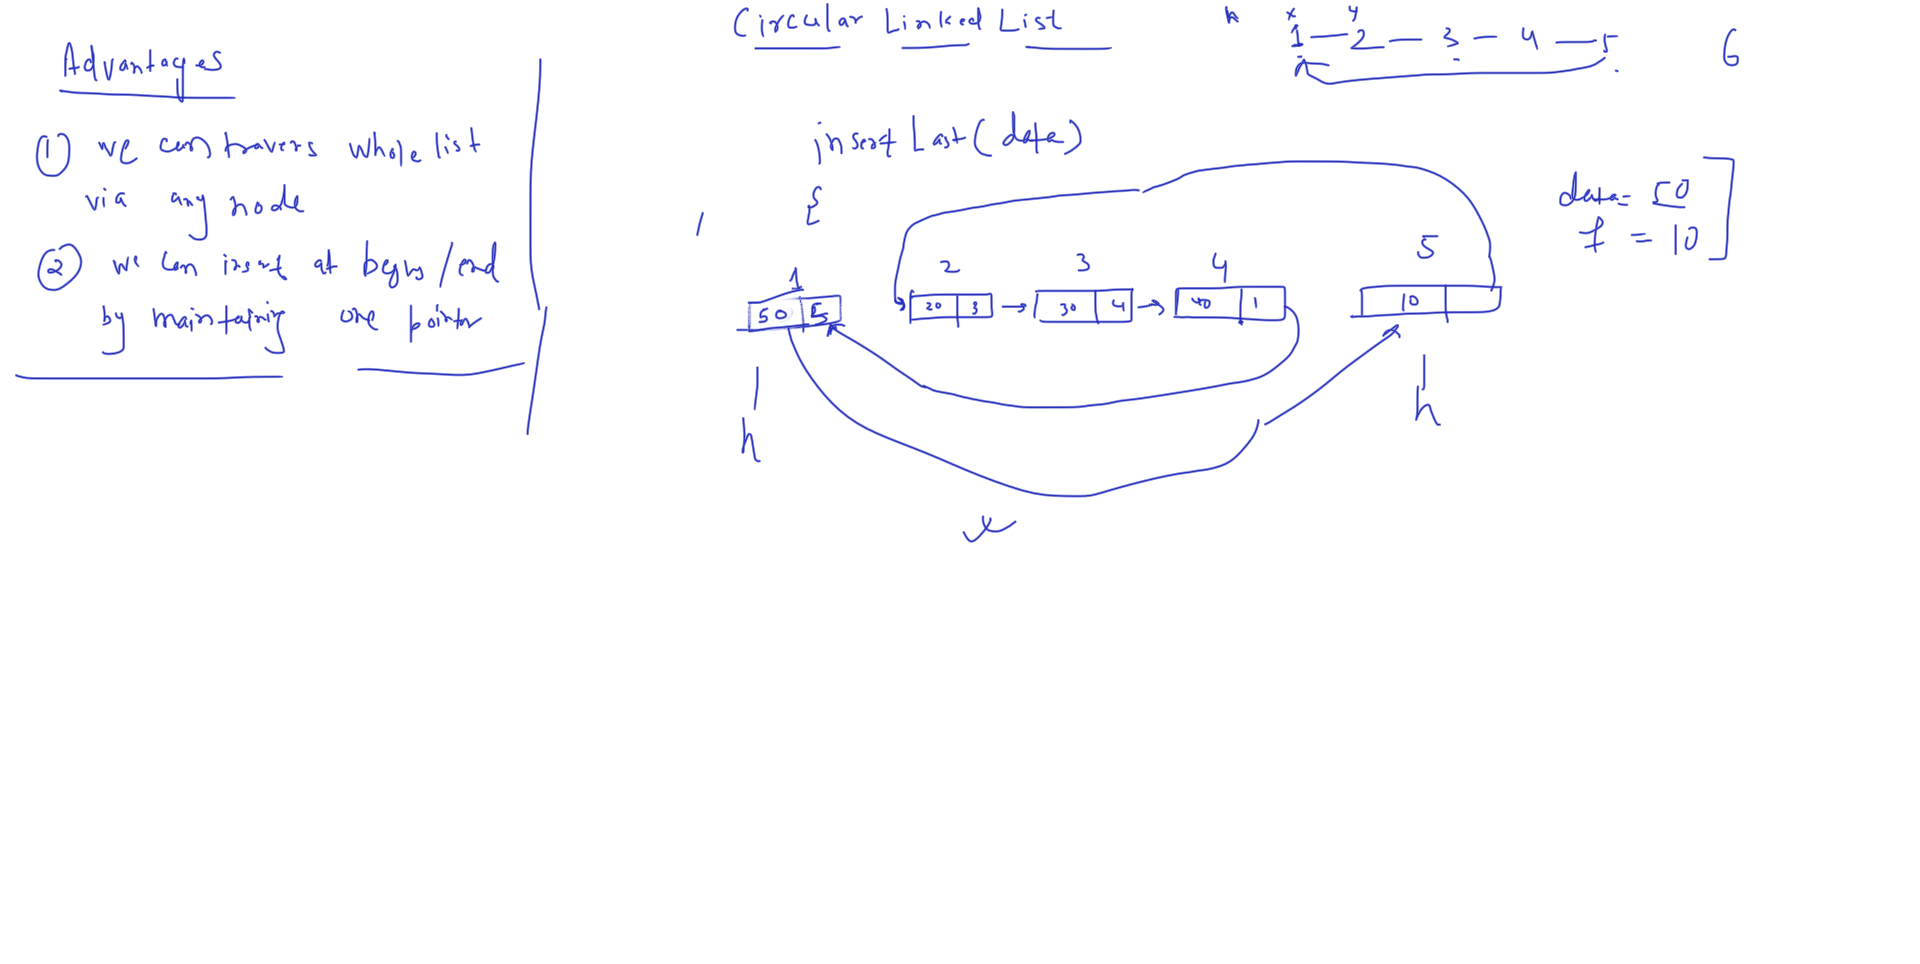 Advantages
① we can travers whole list
via any node
② we can insert at begin/end
by maintaining one pointer
Circular Linked List
h x y
1 — 2 — 3 — 4 — 5 6
insert Last (data)
{
data = 50
f = 10
1 2 3 4 5
50 5 20 3 → 30 4 → 40 1 10
h h